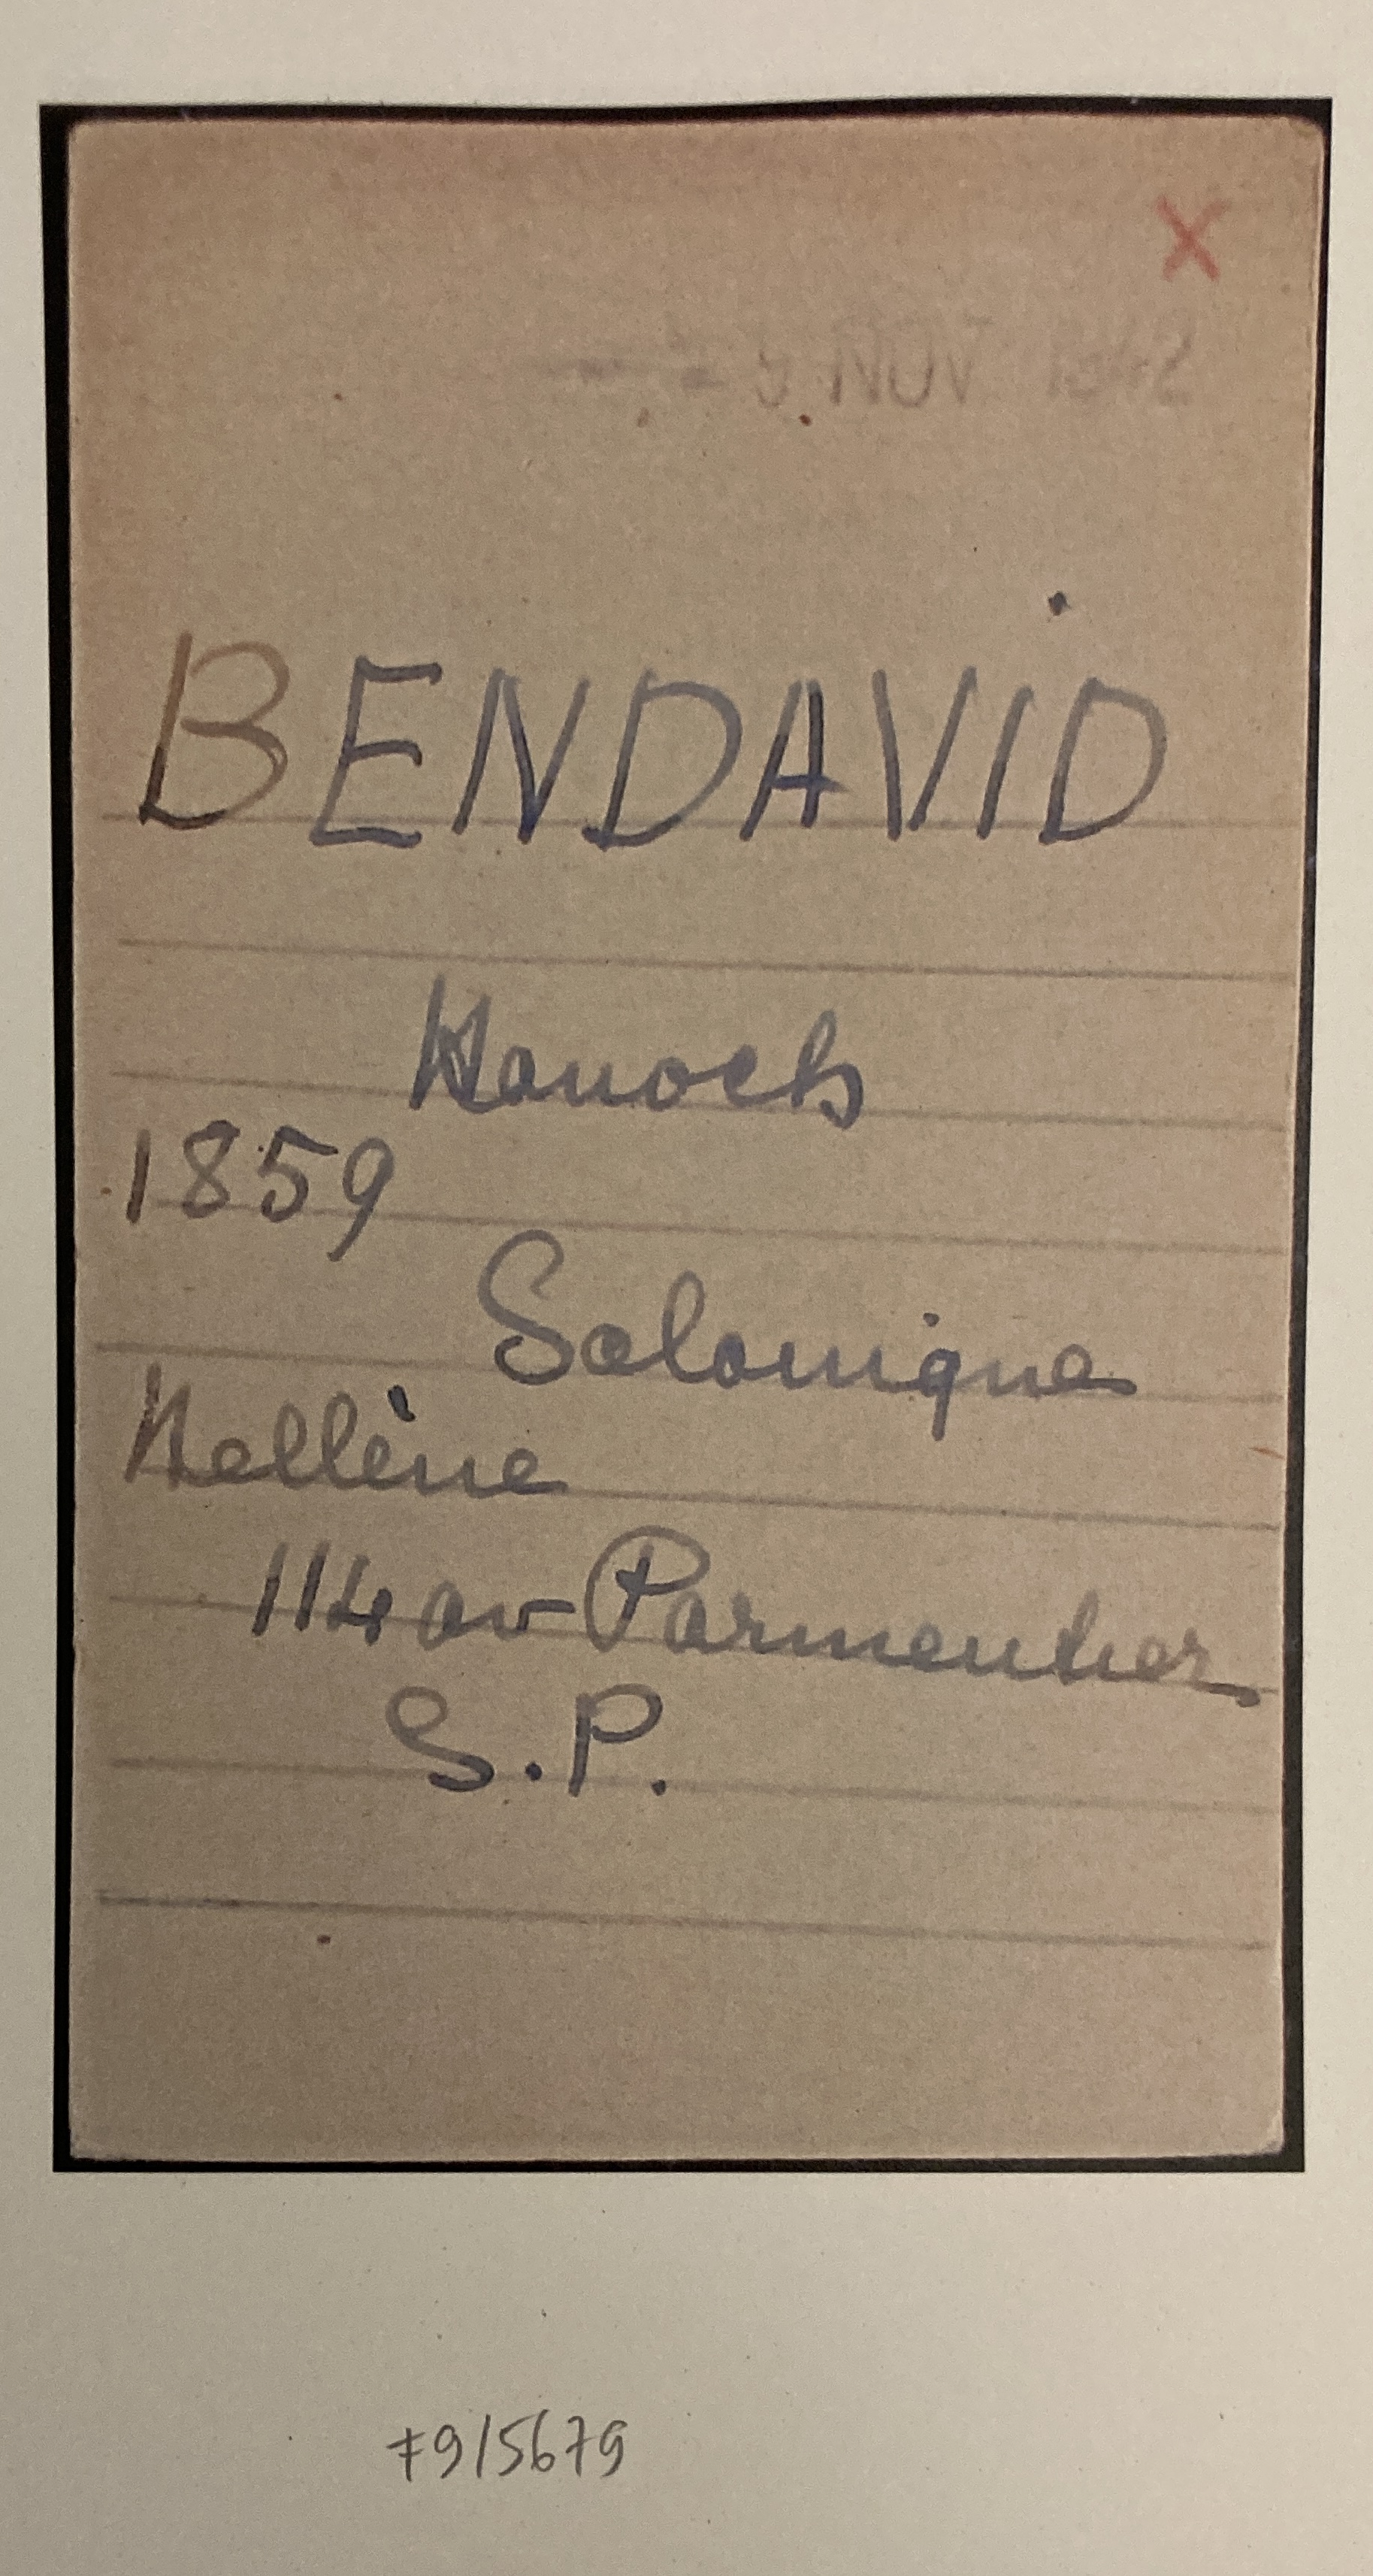 X
5 NOV 1942
BENDAVID
Hanoch
1859
Salonique
Hellène
114 av Parmentier
S.P.
F9/5679